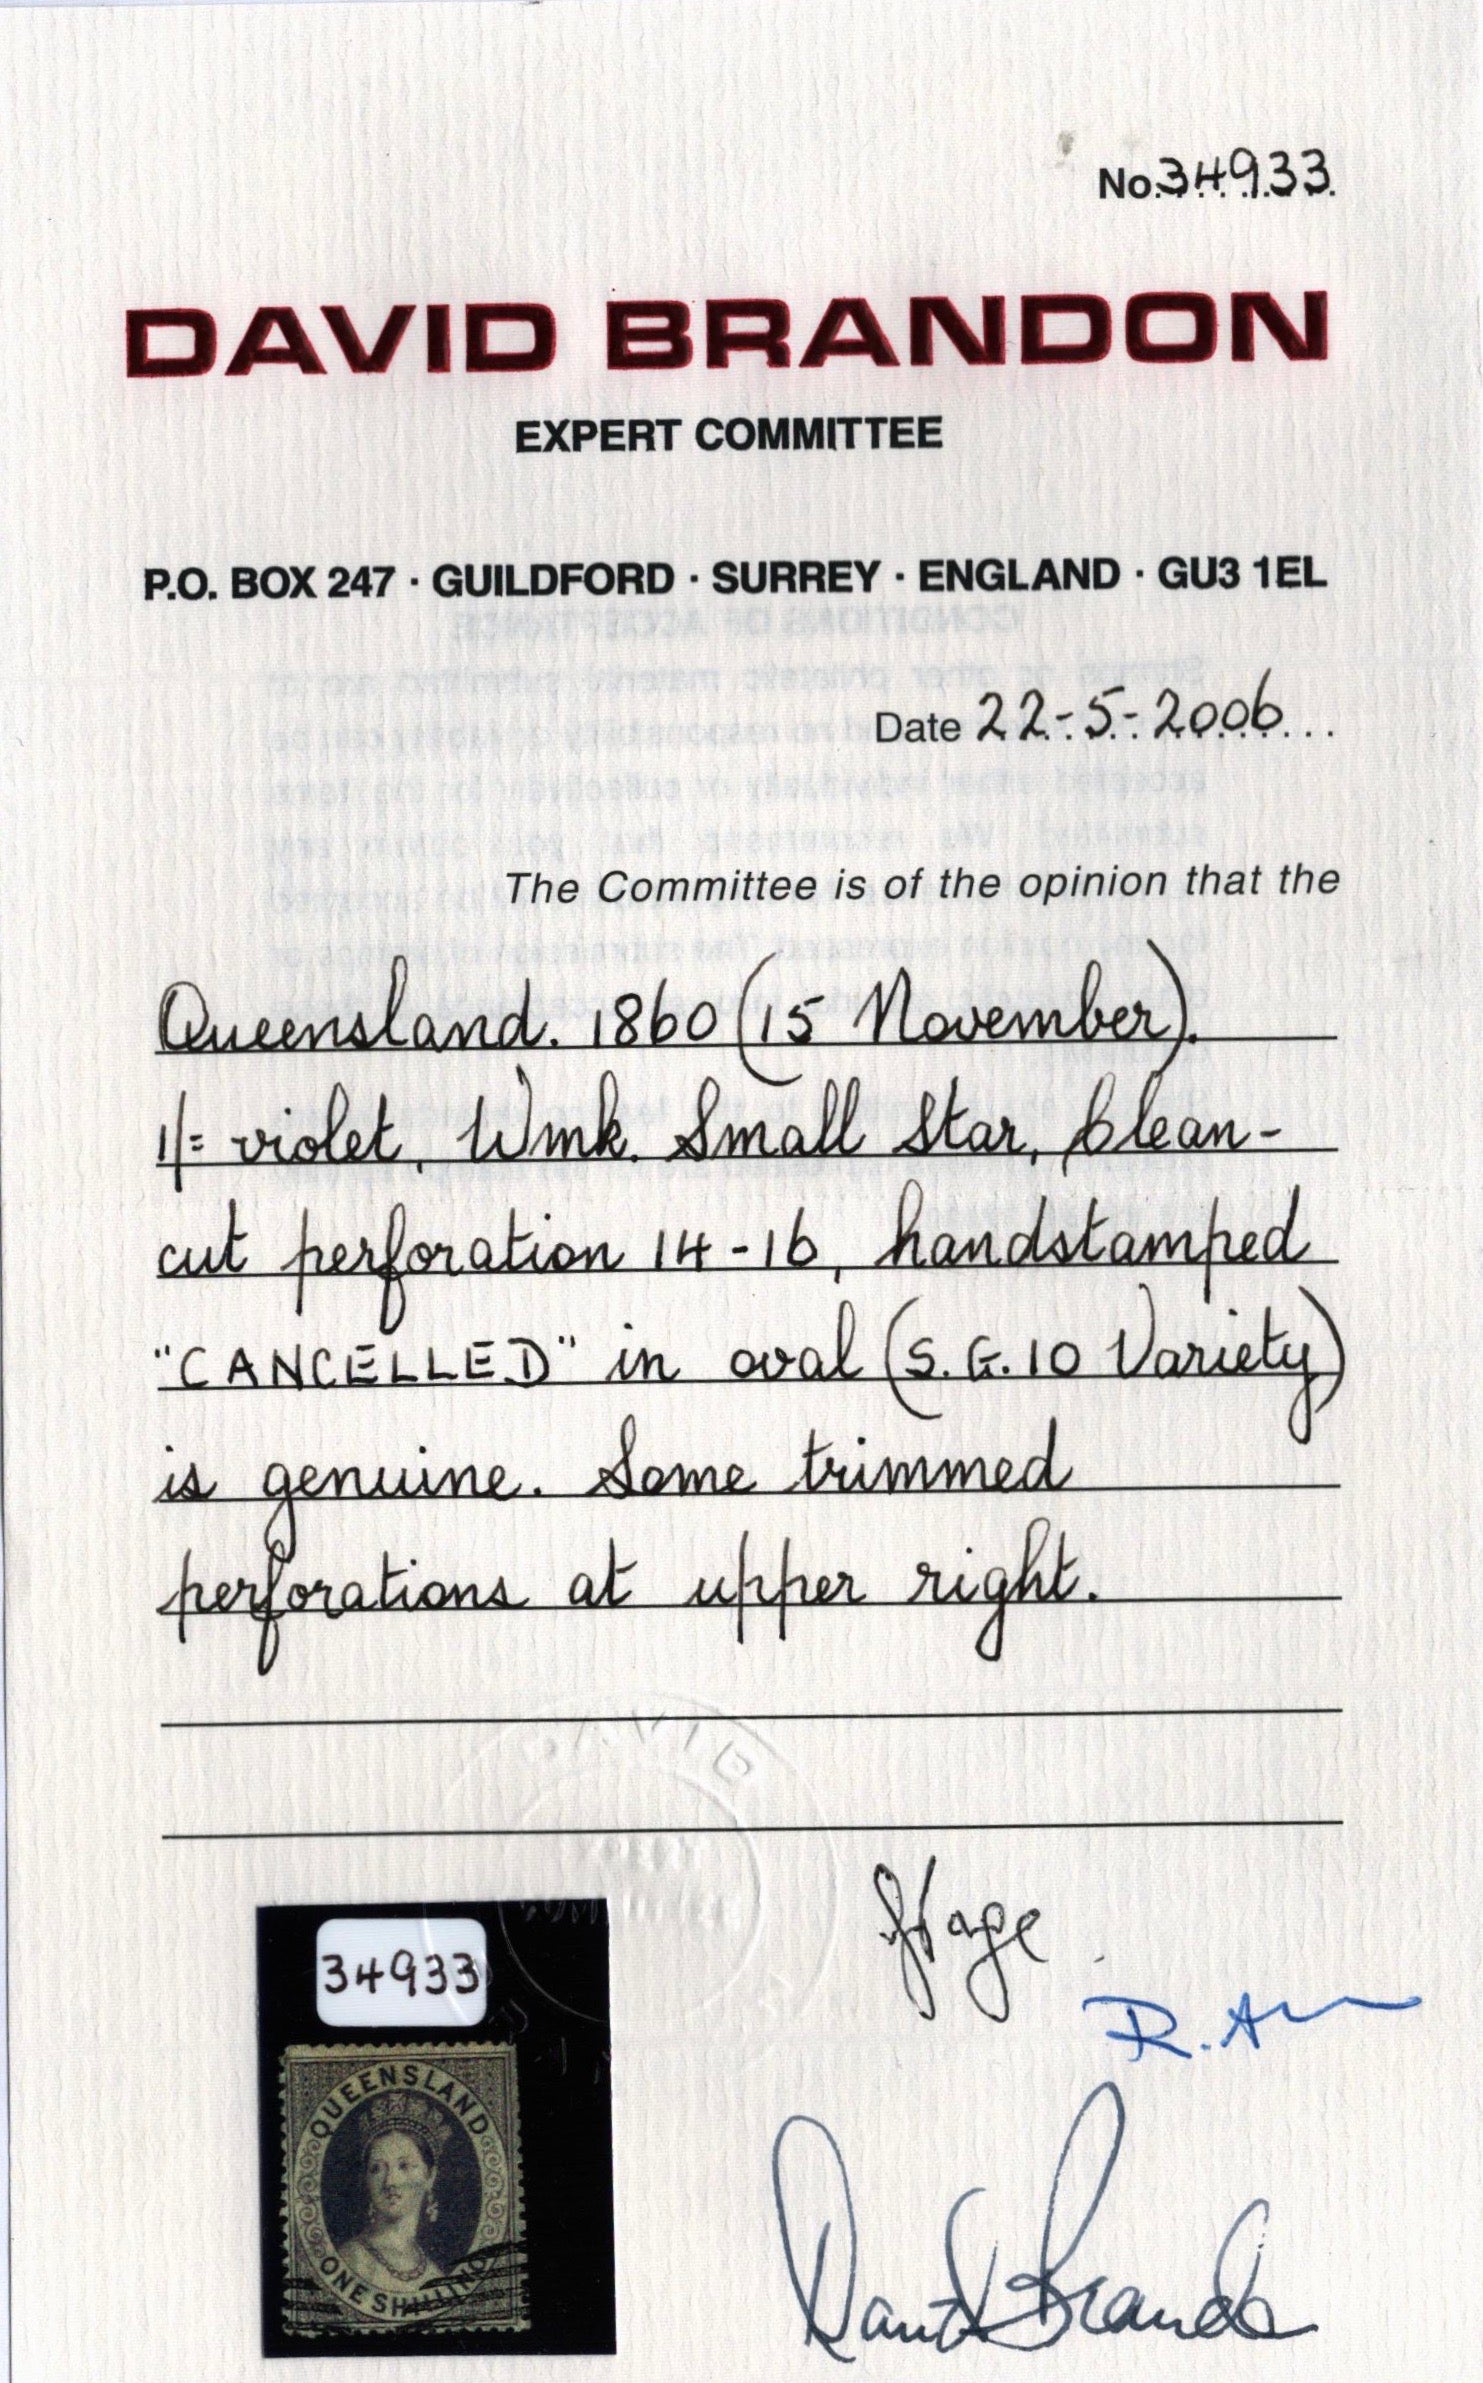 No. 34933
DAVID BRANDON
EXPERT COMMITTEE
P.O. BOX 247 · GUILDFORD · SURREY · ENGLAND · GU3 1EL
CONDITIONS OF ACCEPTANCE
Date 22-5-2006
The Committee is of the opinion that the
Queensland. 1860 (15 November).
1/= violet, Wmk. Small Star, Clean-
cut perforation 14-16, handstamped
"CANCELLED" in oval (S.G.10 Variety)
is genuine. Some trimmed
perforations at upper right.
DAVID
34933
QUEENSLAND
ONE SHILLING
David Brandon